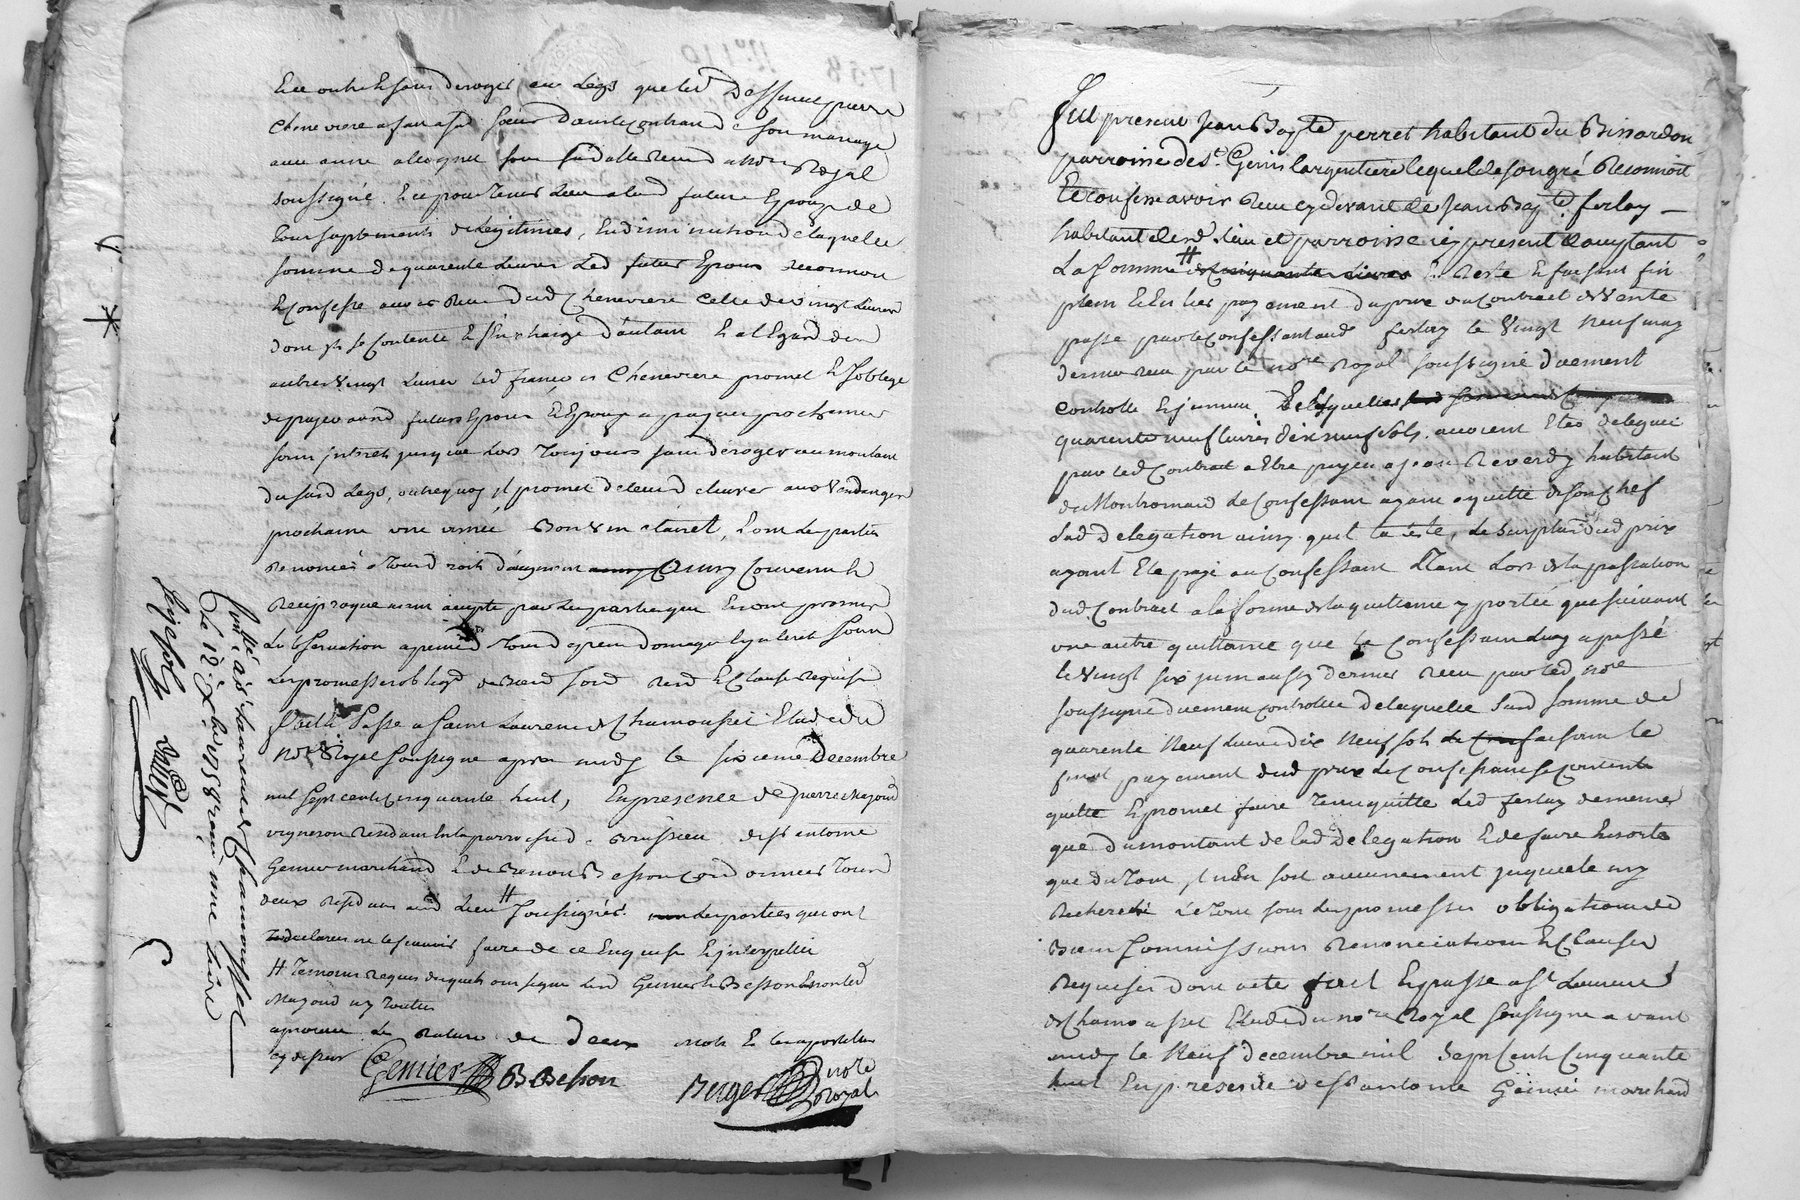 Et en outre Et sans deroger au Legs que led
Cheneviere a fait a sad soeur dans le contrat de son mariage
Royal
soussigné. Et ce pour tenir Lieu a lad future Epouse de
tous suplements de Legitimes, En diminution de laquelle
somme de quarente Livres Led futur Epoux reconnoit
Et Confesse avoir Receu dud Chenevière Celle de vingt Livres
dont il se contente Et s'en charge d'autant Et al Egard des
autres vingt Livres led françois Chenevière promet Et soblige
de payer aud futurs Epoux
sans interets jusques Lors Toujours sans déroger au montant
du susd Legs, outre quoy il promet de leur delivrer aux vendanges
prochaine une annee Bon vin clairet, Et ont les parties
Renoncés a tous droits d'augment ainsy Convenu Et
Reciproquement accepté par les parties qui En ont promis
L'observation a peine de tous depens domages interets sous
Les promesses oblig de Biens soub Rend Et Clauses Requises
fait et Passé a Saint Laurens de Chamousset Etude du
Note Royal soussigné apres midy le sixieme Decembre
mil sept cents cinquante huit, En presence de pierre Mazard
vigneron Residant En la parroisse de Brussieu de st antoine
Genier marchand Et de Benoit Besson Cordonnier Tous
deux Residans aud Lieu # soussignés. Les parties qui ont
declarer ne le scavoir faire de ce Enquise Et interpellé
# Temoins Requis desquels ont signé Lesd Genier Et Besson Et non led
Mazard ny toutes
aprouve La Rature de deux mots Et les apostilles
cy dessus Genier B Besson Berger note Royal
Conllé à st Laurent de Chamousset
Le 12e Xbre 1758 Reçu une livre
six sols
Fut present Jean Bapte perret habitant du Bissardon
parroisse de st. Genis Largentiere lequel de son gré Reconnoit
Et confesse avoir Receu cydevant de Jean Bapte ferlay
habitant dud. Lieu et parroisse icy present Et acceptant
La somme # de Cinquante Livres Et Reste Et faisant fin
plein Et Entier payement du prix du Contract de Vente
passe par le Confessant aud ferlay le Vingt Neuf may
dernier receu par le nore Royal soussigné duement
Controlle Et jnsinué. Desquelles
quarente neuf livres dix neuf sols avoient Etés deleguée
par led Contract a Etre payée a jean Reverdy habitant
du Montromand le Confessant ayant aquitté de son Chef
Lad delegation ainsy quil latteste, le surplus dud prix
ayant Ete payé au Confessant Tant Lors de la passation
dud. Contract a la forme de la quittance y portée que suivant
une autre quittance que le Confessant luy a passé
le Vingt six juin aussy dernier receu par led nore
soussigné duement controllée de laquelle susd somme de
quarente Neuf Livres dix Neuf sols faisant le
final payement dud prix le Confessant se contente
quitte Et promet faire tenir quitte Led ferlay de meme
que du montant de lad Delegation Et de faire En sorte
que du tout il n'en soit aucunement jnquieté ny
Recherché Le tout sous Les promesses obligations de
Biens soumissions Renonciations Et Clauses
Requises dont acte fait Et passé a st Laurens
de Chamousset Etude du nore Royal soussigné avant
midy le Neuf decembre mil sept Cents Cinquante
huit En presence de st antoine Genier marchand